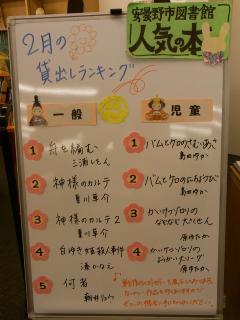 安曇野市図書館
人気の本
2月の
貸出しランキング
一般
1 舟を編む
三浦しをん
2 神様のカルテ
夏川草介
3 神様のカルテ2
夏川草介
4 白ゆき姫殺人事件
湊かなえ
5 何者
朝井リョウ
児童
1 バムとケロのさむいあさ
島田ゆか
2 バムとケロのにちようび
島田ゆか
3 かいけつゾロリの
なぞなぞ大さくせん
原ゆたか
4 かいけつゾロリの
原ゆたか